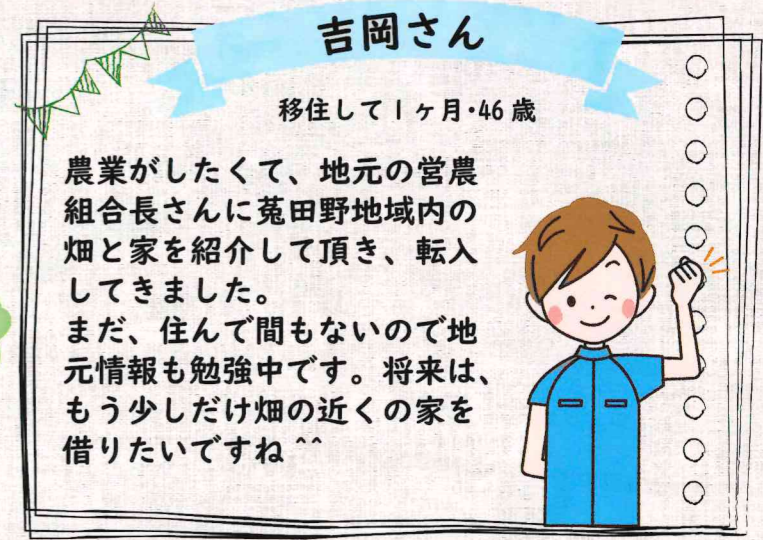 吉岡さん
移住して1ヶ月・46歳
農業がしたくて、地元の営農
組合長さんに菟田野地域内の
畑と家を紹介して頂き、転入
してきました。
まだ、住んで間もないので地
元情報も勉強中です。将来は、
もう少しだけ畑の近くの家を
借りたいですね^^